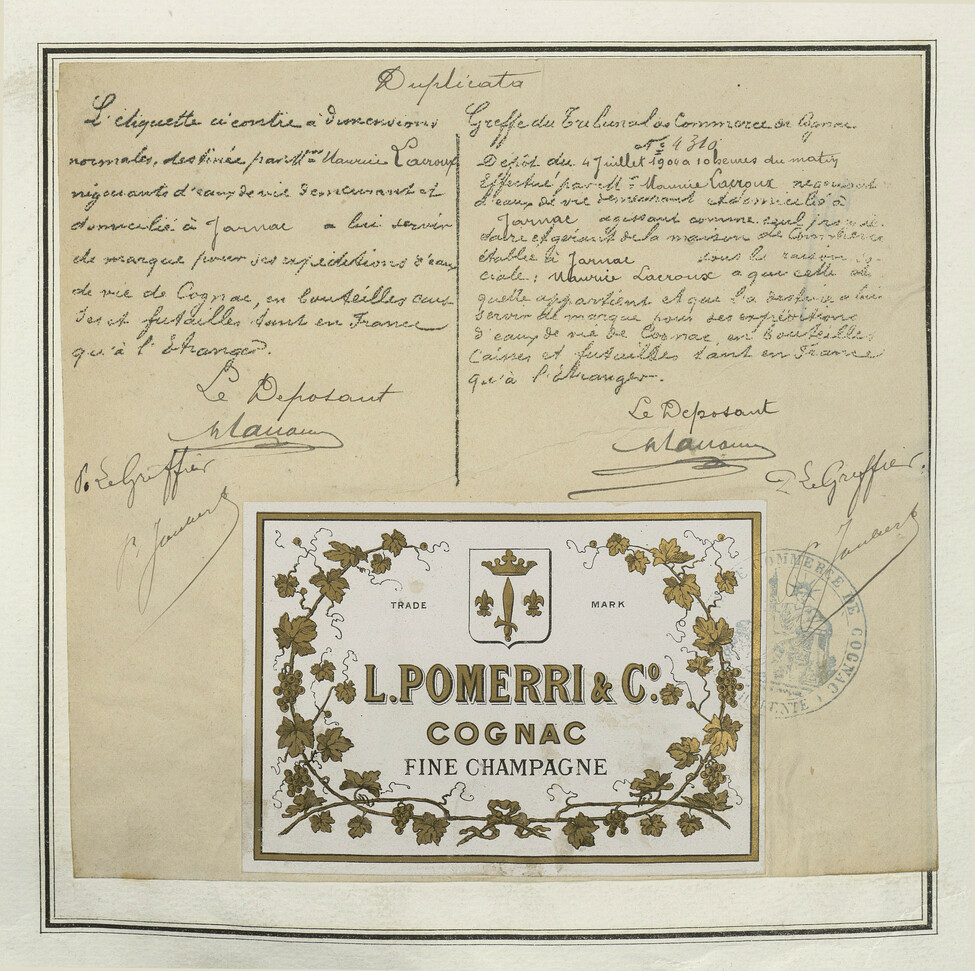 Duplicata
L'étiquette ci contre à dimensions
normales, destinée par Mr Maurice Lacroux
négociants d'eau de vie demeurant et
domicilié à Jarnac a lui servir
de marque pour ses expéditions d'eau
de vie de Cognac, en bouteilles cais-
ses et futailles tant en France
qu'à l'Etranger.
Le Deposant
P. Le Greffier
P. Jaubert
Greffe du Tribunal de Commerce de Cognac
No 4310
Dépôt du 4 Juillet 1904 a 10 heures du matin
Effectué par Mr Maurice Lacroux negociant
d'eau de vie demeurant et domicilié à
Jarnac agissant comme seul proprié-
taire et gérant de la maison de Commerce
établie à Jarnac sous la raison so-
ciale: Maurice Lacroux a que cette éti-
quette appartient et que l'a destine a lui
servir de marque pour ses expéditions
d'eau de vie de Cognac, en bouteilles
Caisses et futailles tant en France
qu'à l'Etranger.
Le Deposant
P. Le Greffier
P. Jaubert
TRADE MARK
L. POMERRI & Co.
COGNAC
FINE CHAMPAGNE
COMMERCE DE COGNAC
CHARENTE